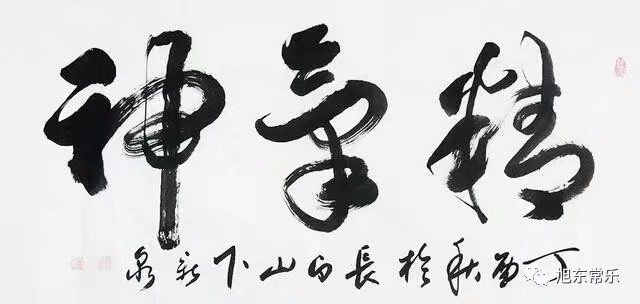 精氣神
丁酉秋於長白山下新泉
旭东常乐